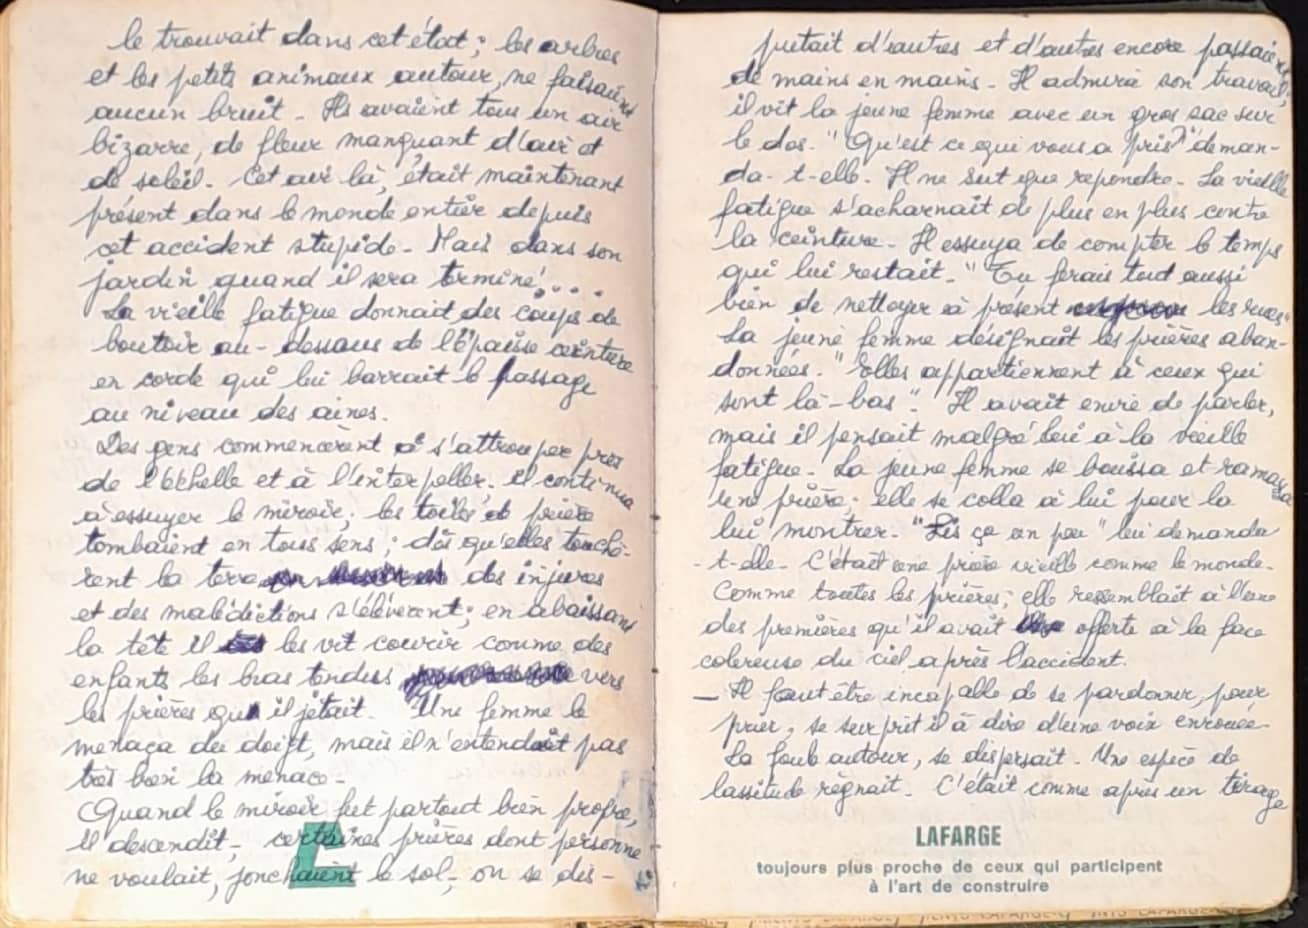 le trouvait dans cet état ; les arbres
et les petits animaux autour, ne faisaient
aucun bruit - Ils avaient tous un air
bizarre, de fleur manquant d'air et
de soleil. Cet air là, était maintenant
présent dans le monde entier depuis
cet accident stupide - Mais dans son
jardin quand il sera terminé...
La vieille fatigue donnait des coups de
boutoir au-dessous de l'épaisse ceinture
en corde qui lui barrait le passage
au niveau des aines.
Des gens commencèrent à s'attrouper près
de l'échelle et à l'interpeller. il continua
à essuyer le miroir ; les toiles et prière
tombaient en tous sens ; dès qu'elles touchè-
rent la terre des injures
et des malédictions s'élevèrent ; en abaissant
la tête il les vit courir comme des
enfants les bras tendus vers
les prières qu'il jetait. Une femme le
menaça du doigt, mais il n'entendait pas
très bien la menace -
Quand le miroir fut partout bien propre,
il descendit - certaines prières dont personne
ne voulait, jonchaient le sol -, on se dis-
putait d'autres et d'autres encore passaient
de mains en mains - Il admira son travail,
il vit la jeune femme avec un gros sac sur
le dos. "Qu'est ce qui vous a pris ?" deman-
da-t-elle. Il ne sut que répondre - La vieille
fatigue s'acharnait de plus en plus contre
la ceinture - Il essuya de compter le temps
qui lui restait. "Tu ferais tout aussi
bien de nettoyer à présent les rues"
La jeune femme désignait les prières aban-
données. "elles appartiennent à ceux qui
sont là-bas". Il avait envie de parler,
mais il pensait malgré lui à la vieille
fatigue - La jeune femme se baissa et ramassa
une prière ; elle se colla à lui pour la
lui montrer - "Lis ça un peu" lui demanda
-t-elle - C'était une prière vieille comme le monde -
Comme toutes les prières, elle ressemblait à l'une
des premières qu'il avait offerte à la face
colereuse du ciel après l'accident.
— Il faut être incapable de se pardonner, pour
prier, se surprit il à dire d'une voix enrouée -
La foule autour, se dispersait. Une espèce de
lassitude régnait. C'était comme après un tirage
LAFARGE
toujours plus proche de ceux qui participent
à l'art de construire